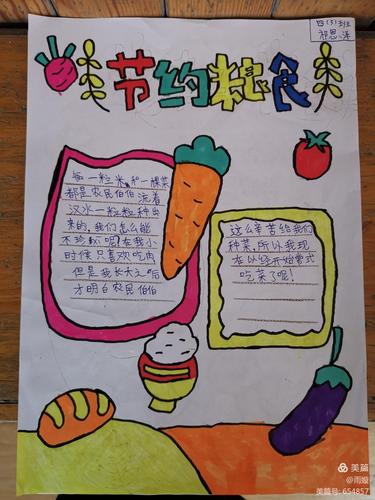 四(5)班
祁思泽
节约粮食
每一粒米和一棵菜
都是农民伯伯流着
汉水一粒粒种出
来的,我们怎么能
不珍惜呢?在我小
时候只喜欢吃肉
但是我长大之后
才明白农民伯伯
这么辛苦给我们
种菜,所以我现
在以经开始尝式
吃菜了呢!
美篇
@雨嫙
美篇号: 654857